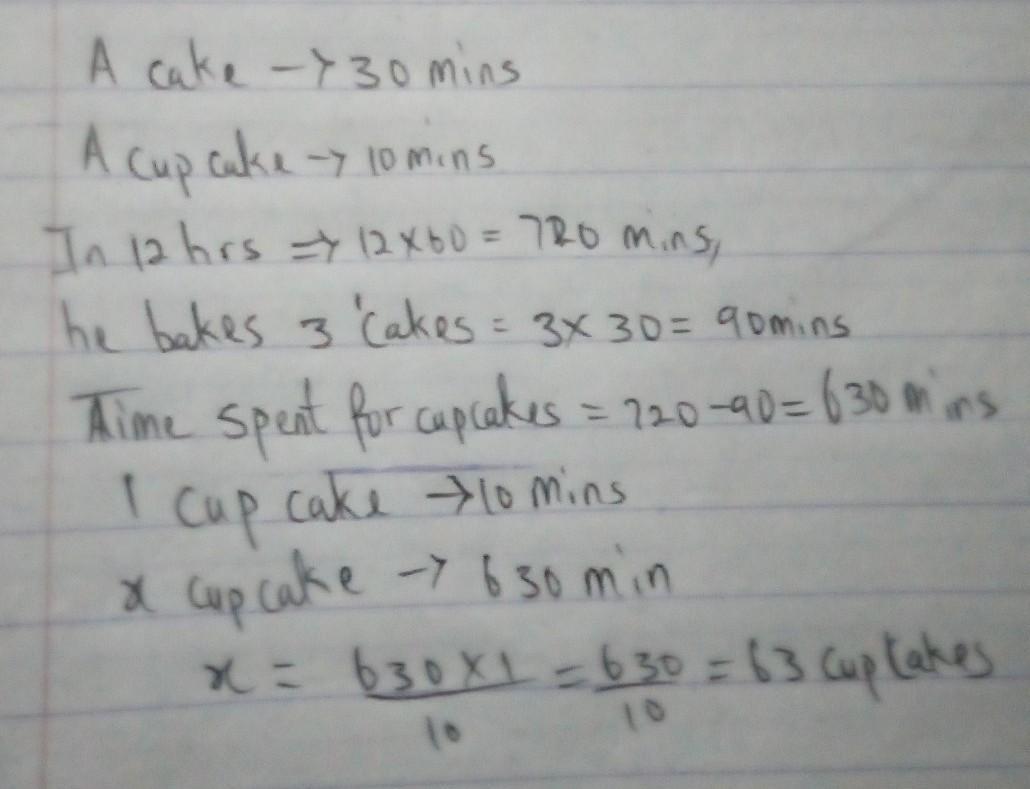 A cake → 30 mins
A Cup cake → 10 mins
In 12 hrs ⇒ 12 x 60 = 720 mins,
he bakes 3 cakes = 3 x 30 = 90mins
Time spent for cupcakes = 720 - 90 = 630 mins
1 cup cake → 10 mins
x cup cake → 630 min
x = 630 x 1 / 10 = 630 / 10 = 63 cup cakes